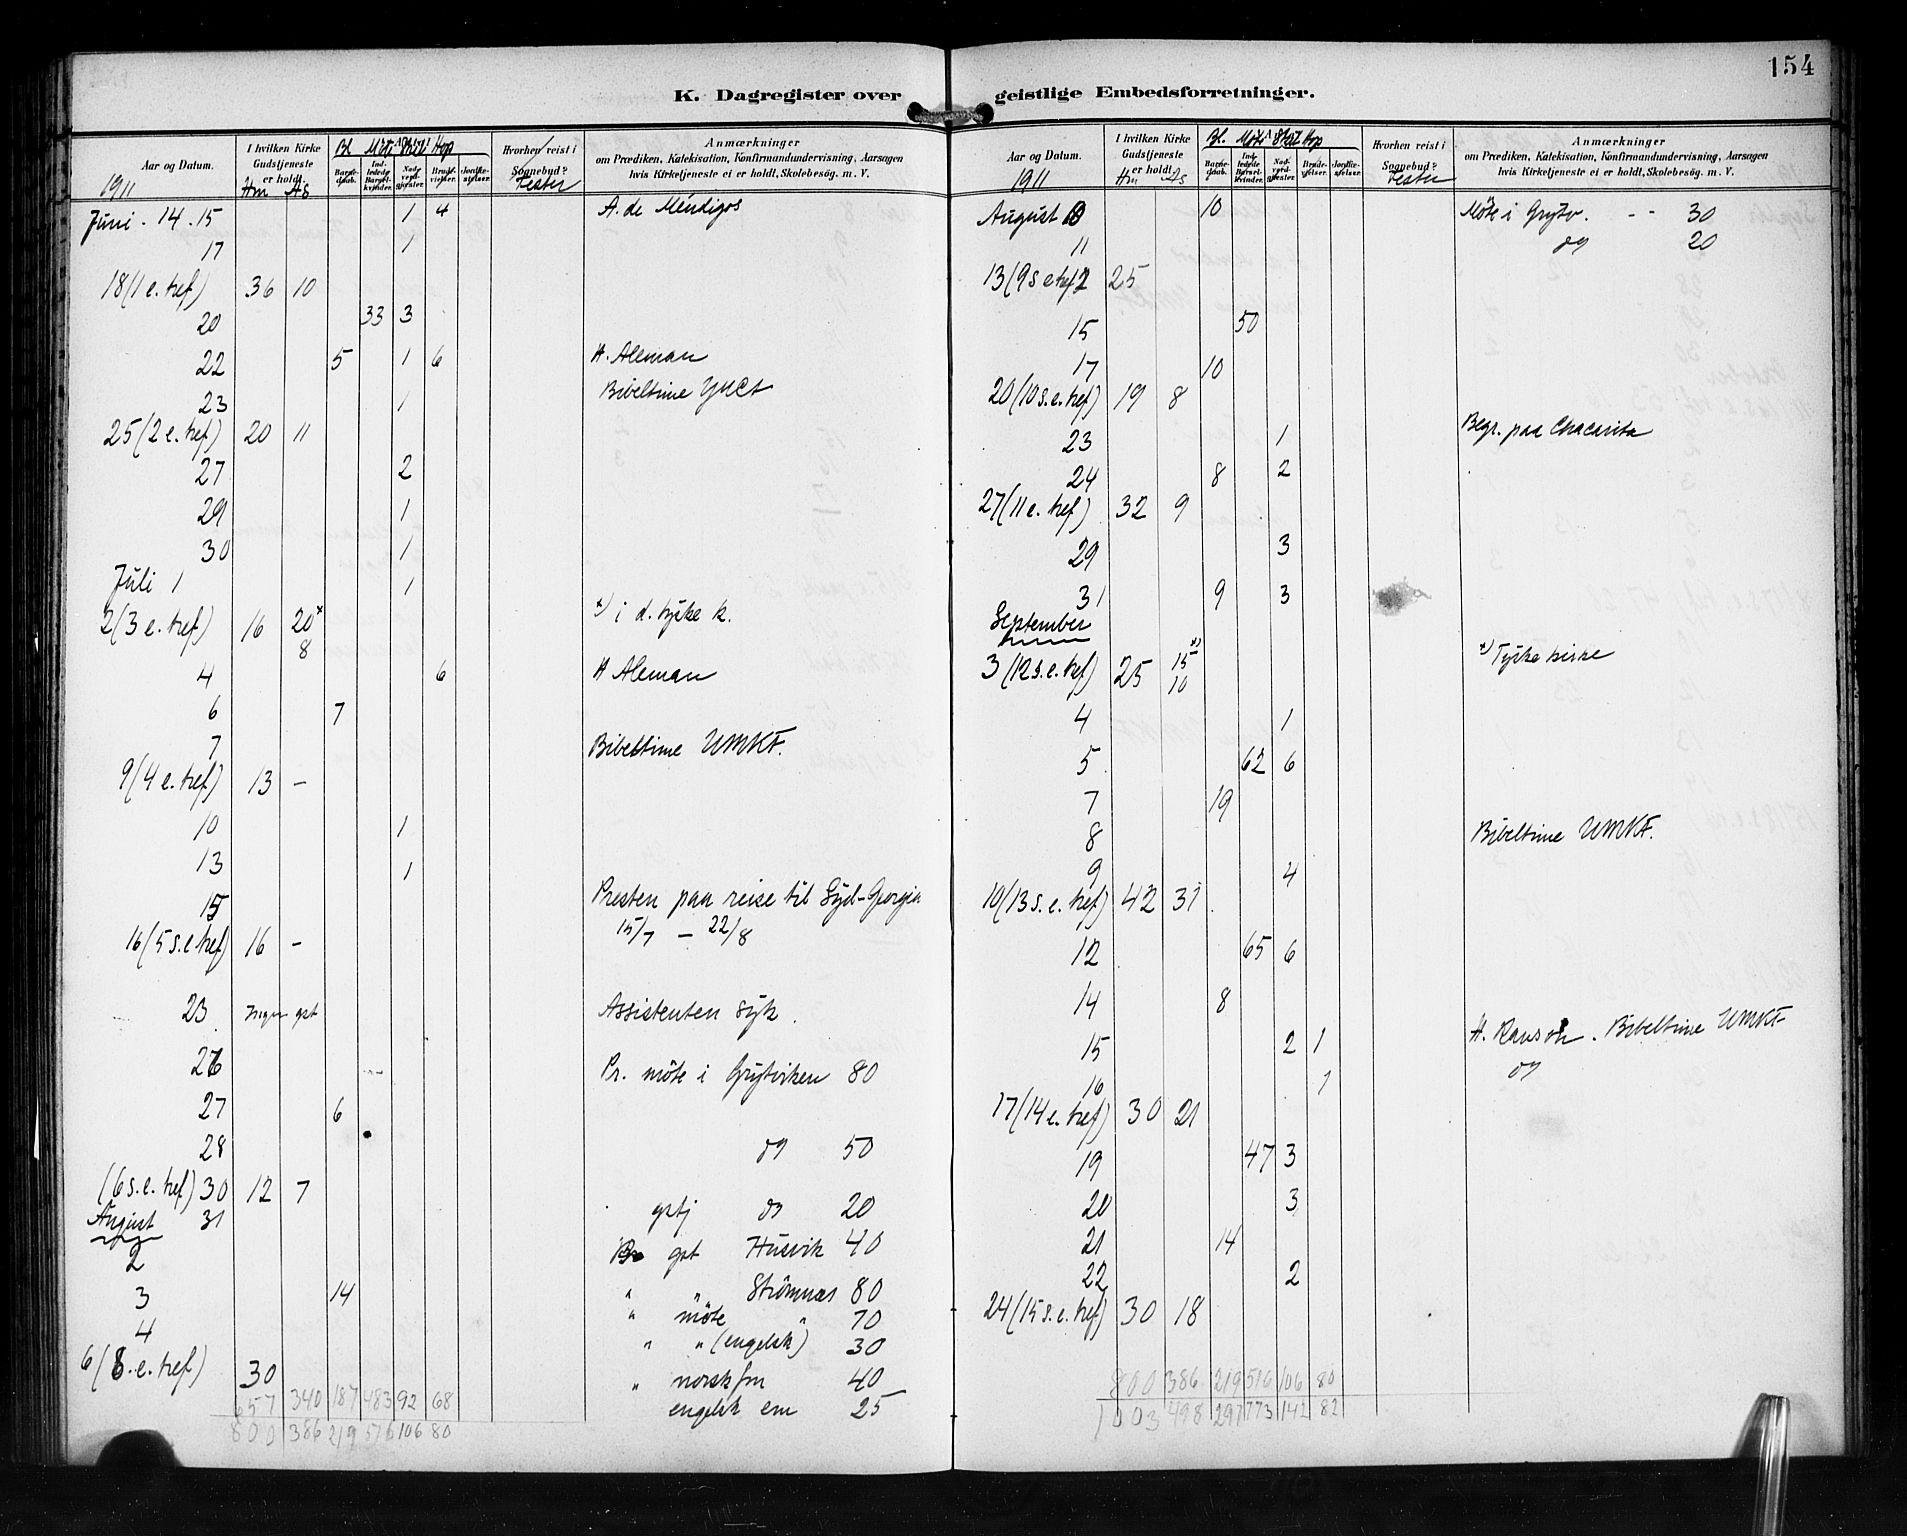 154
K. Dagregister over geistlige Embedsforretninger.
Aar og Datum. 1911
I hvilken Kirke Gudstjeneste er holdt. Hm As
Bl Möte Skibl Hop
Barnedaab.
Indledede Barselkvinder.
Nadverdgjester
Brudevielser.
Jordfæstelser.
Hvorhen reist i Sognebud? Fester
Anmærkninger
om Prædiken, Katekisation, Konfirmandundervisning, Aarsagen
hvis Kirketjeneste ei er holdt, Skolebesög. m. V.
Juni - 14 . 15 1 4 A. de Mendigos
17 1
18 (1 e. tref) 36 10
20 33 3
22 5 1 6 H. Aleman
23 1 Bibeltime
25 (2 e. tref) 20 11
27 2
29 1
30 1
Juli 1 1
2 (3 e. tref) 16 20 x x) i d. tyske k.
8
4 6 H Aleman
6 7
7 Bibeltime UMKF.
9 (4 e. tref) 13 -
10 1
13 1
15 Presten paa reise til Syd-Georgia
15/7 - 22/8
16 (5 s.e tref) 16 -
23 Ingen gst Assistenten syk.
26 Pr. möte i Grytviken 80
27 6
28 do 50
(6 s. e. tref) 30 12 7
August 31 gstj do 20
2 gst Husvik 40
3 14 " " Strömnæs 80
4 " möte " 70
" " (engelsk) 30
6 (8. e. tref) 30
" norsk fm 40
engelsk em 25
657 340 187 483 92 68
800 386 219 516 106 80
Aar og Datum. 1911
I hvilken Kirke Gudstjeneste er holdt. Hm As
Bl. Möte Skibl Hop
Barnedaab.
Indledede Barselkvinder.
Nadverdgjester
Brudevielser.
Jordfæstelser.
Hvorhen reist i Sognebud? Fester
Anmærkninger
om Prædiken, Katekisation, Konfirmandundervisning, Aarsagen
hvis Kirketjeneste ei er holdt, Skolebesög. m. V.
August 10 10 Möte i Grytv. - - 30
11 do 20
13 (9 s e tref) 25
15 50
17 10
20 (10 s. e. tref) 19 8
23 1 Begr. paa Chacarita
24 8 2
27 (11 e. tref) 32 9
29 3
31 9 3
September
3 (12 s. e. tref) 25 15 x) x) Tyske kirke
10
4 1
5 62 6
7 19
8 Bibeltime UMKF.
9 4
10 (13 s. e. tref) 42 31
12 65 6
14 8
15 2 1 H. Ranson. Bibeltime UMKF
16 1 do
17 (14 e. tref) 30 21
19 47 3
20 3
21 14
22 2
24 (15 s. e. tref) 30 18
800 386 219 516 106 80
1003 498 297 773 142 82